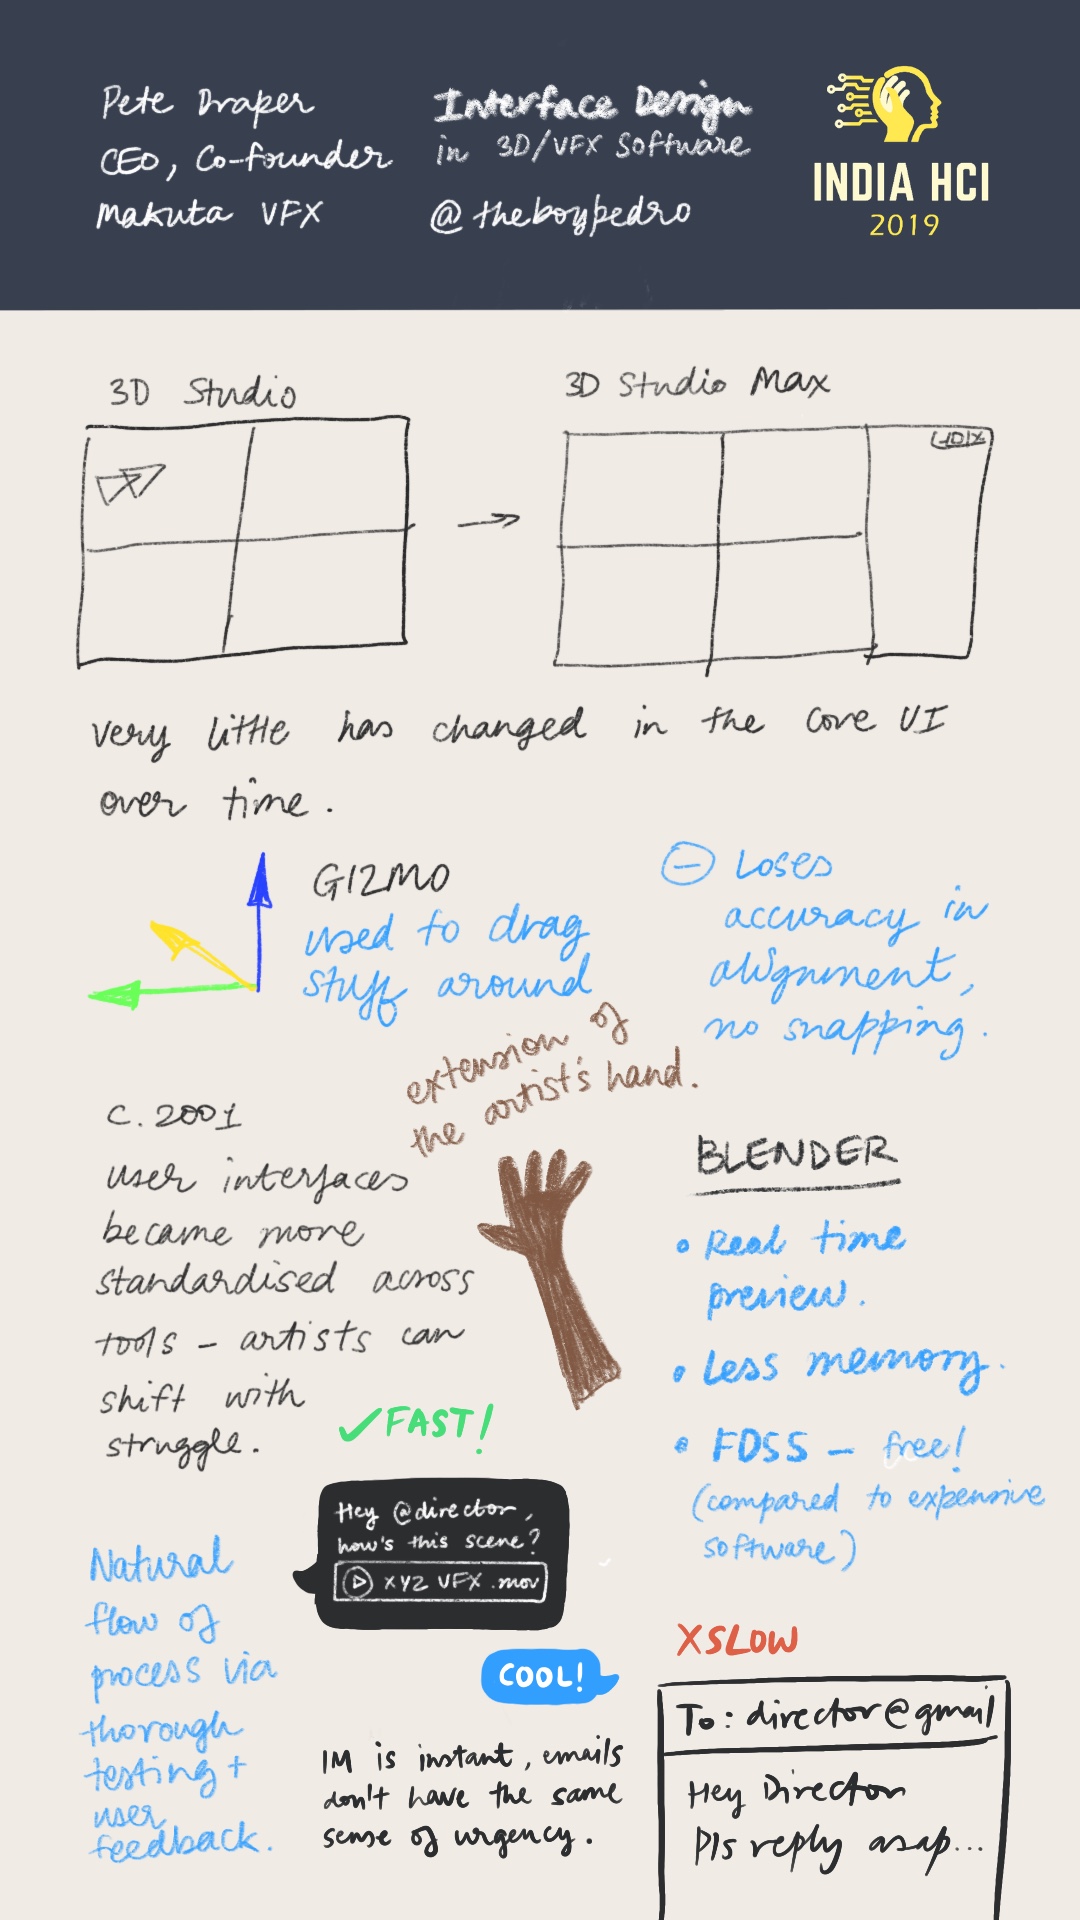 Pete Draper
CEO, Co-founder
Makuta VFX
Interface Design
in 3D/VFX Software
@theboypedro
INDIA HCI
2019
3D Studio
3D Studio Max
very little has changed in the core UI
over time.
GIZMO
used to drag
stuff around
⊖ Loses
accuracy in
alignment,
no snapping.
extension of
the artist's hand.
C. 2001
user interfaces
became more
standardised across
tools - artists can
shift with
struggle.
BLENDER
• Real time
preview.
• Less memory.
• FOSS - free!
(compared to expensive
software)
✓ FAST!
Hey @director,
how's this scene?
XYZ VFX .mov
COOL!
Natural
flow of
process via
thorough
testing +
user
feedback.
IM is instant, emails
don't have the same
sense of urgency.
X SLOW
To: director@gmail
Hey Director
Pls reply asap...